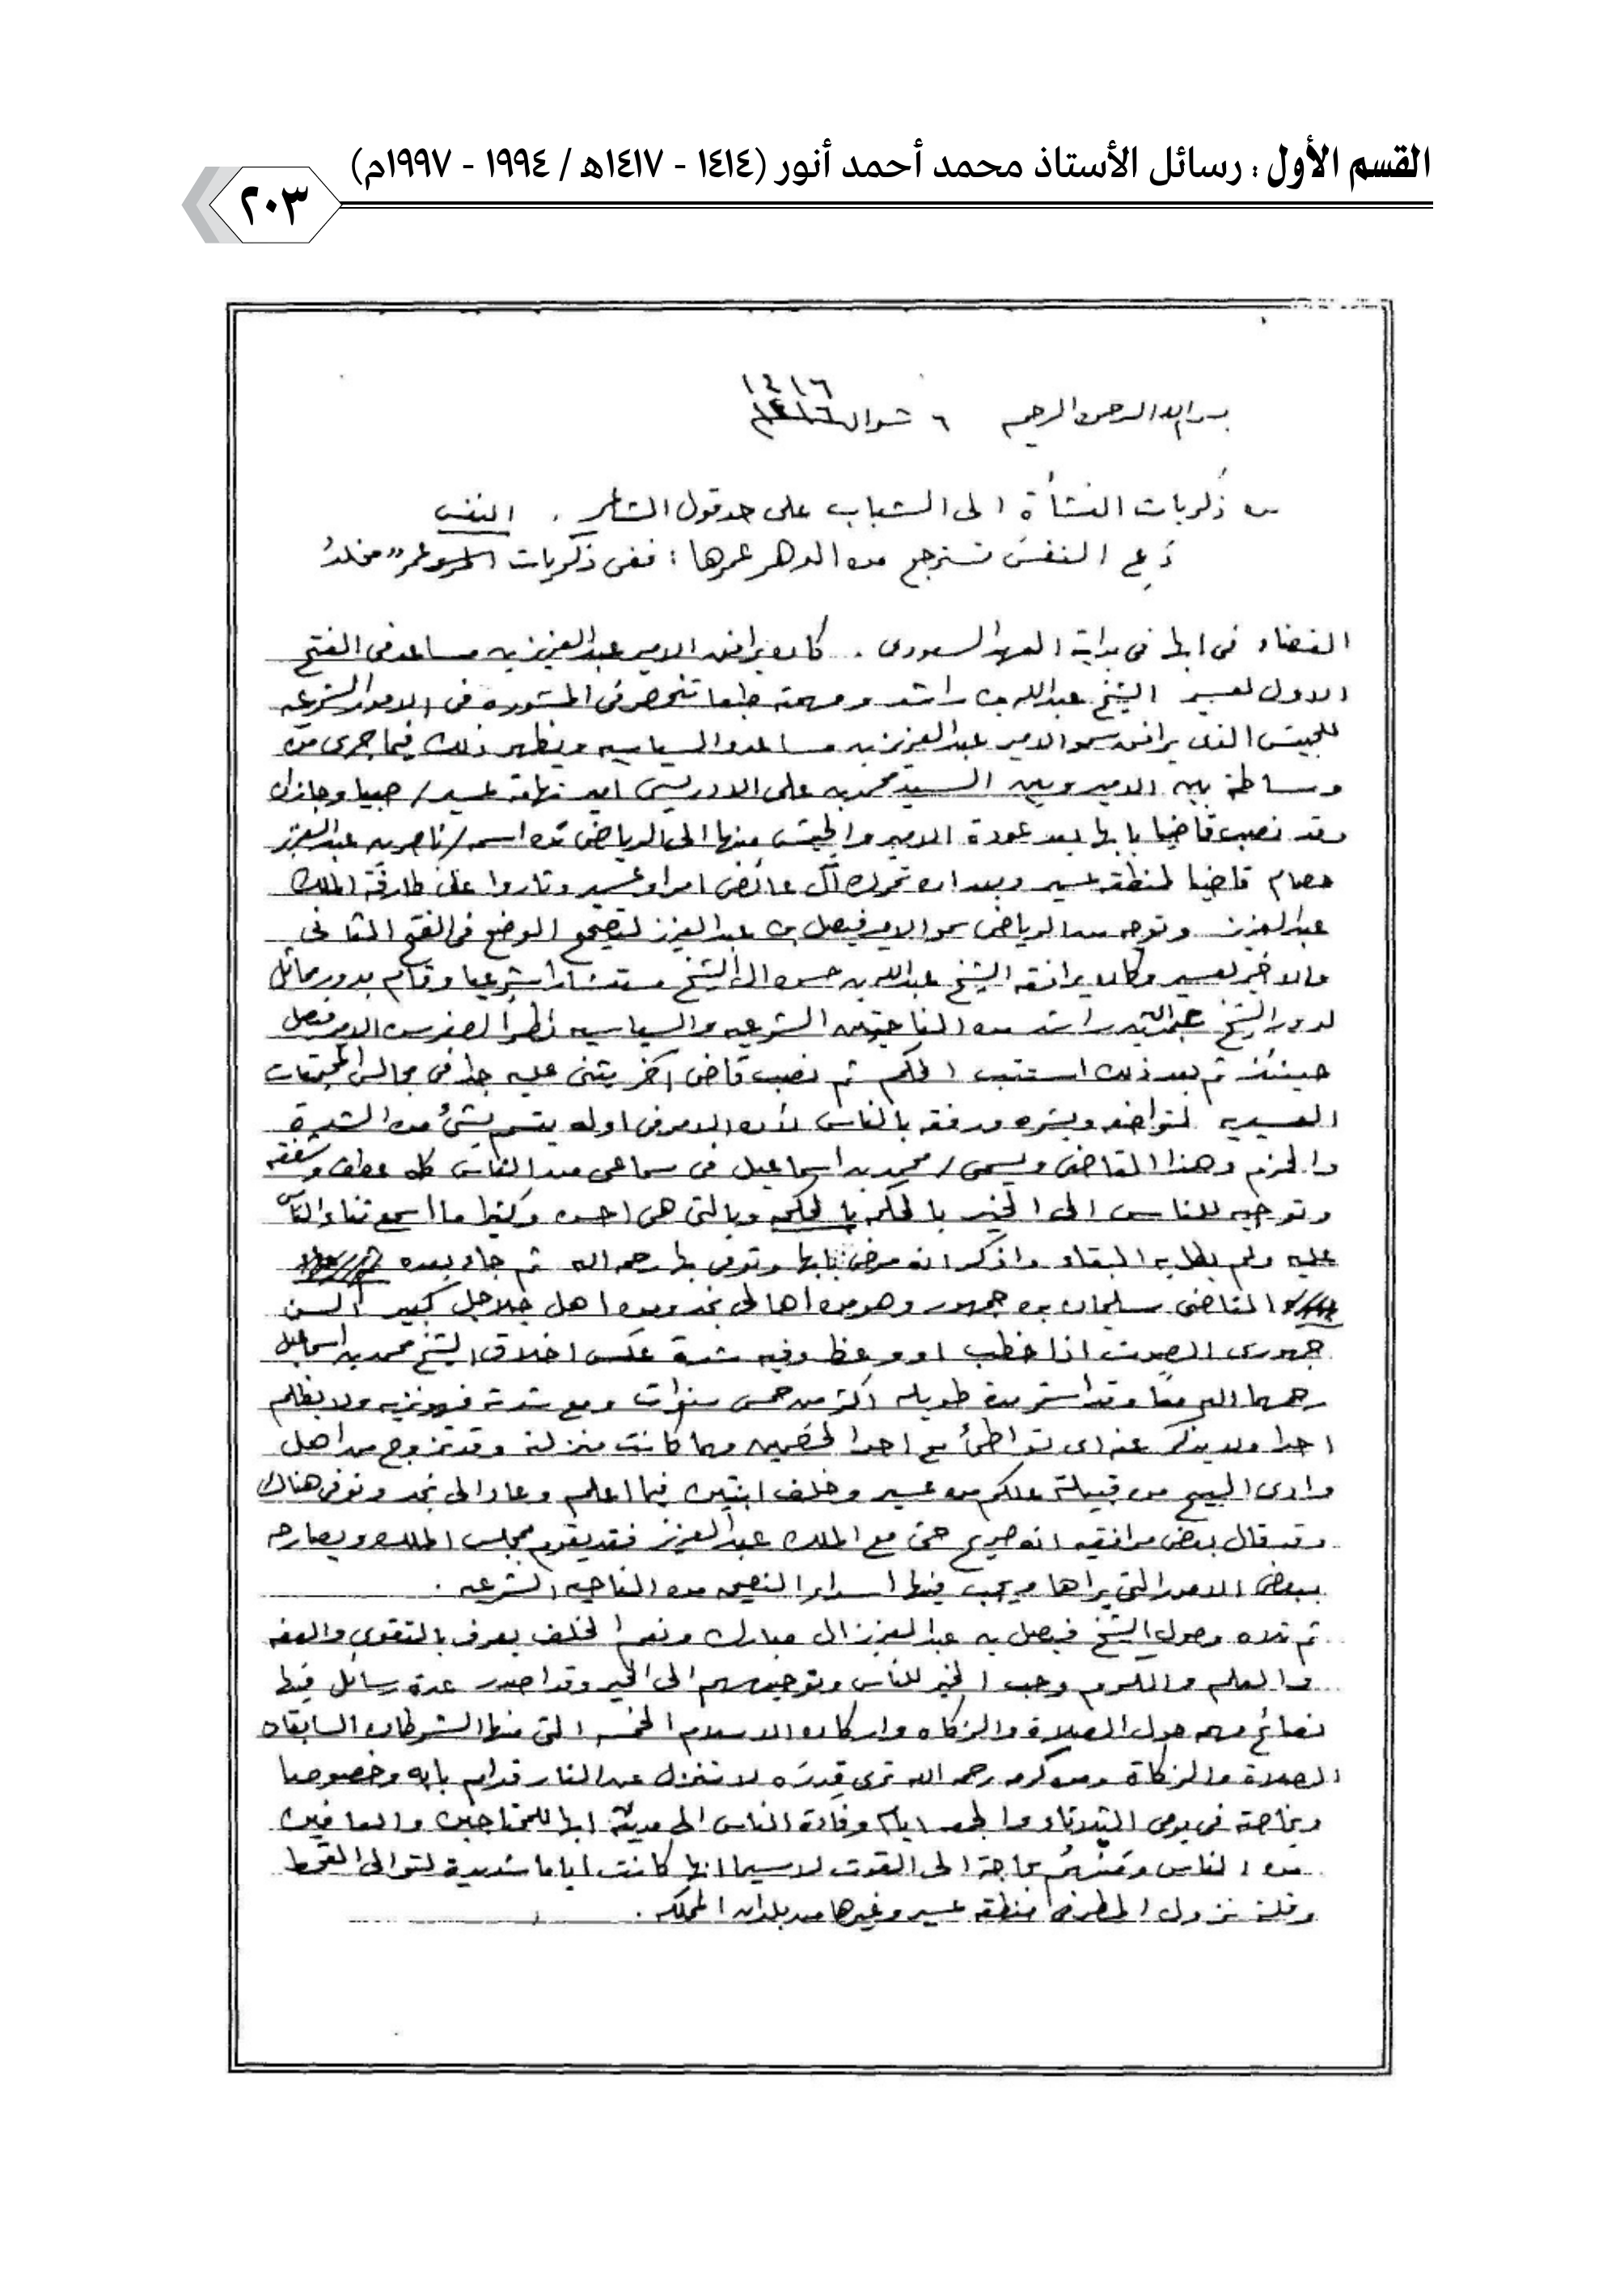 القسم الأول : رسائل الأستاذ محمد أحمد أنور (١٤١٤ - ١٤١٧هـ / ١٩٩٤ - ١٩٩٧م)
٢٠٣
١٤١٦
بسم الله الرحمن الرحيم ٦ شوال ١٤١٦
من ذكريات النشأة الى الشباب على حد قول الشاعر . النفس
دَعِ النفسَ تسترجع من الدهر عمرها : ففى ذكريات عمر " مخلدُ
القضاء فى ابها فى بداية العهد السعودى . كان يرافق الامير عبدالعزيز بن مساعد فى الفتح
الاول لعسير الشيخ عبدالله بن راشد ومهمته طبعا تنحصر فى المشوره فى الامور الشرعيه
للجيش الذى يرافق سمو الامير عبدالعزيز بن مساعد والسياسيه ويظهر ذلك فيما جرى من
وساطة بين الامير وبين السيد محمد بن على الادريسى امير تهامة عسير / صبيا وجازان
وقد نصب قاضيا بابها بعد عودة الامير والجيش منها الى الرياض من اسمه / ناصر بن عبدالعزيز
حصام قاضيا لمنطقة عسير وبعد ان تحرك آل عائض امراء عسير وثاروا على طارفة الملك
عبدالعزيز وتوجه من الرياض سمو الامير فيصل بن عبدالعزيز لتصحيح الوضع فى الفتح الثانى
والاخير لعسير وكان يرافقه الشيخ عبدالله بن حسن ال الشيخ مستشارا شرعيا وقام بدور مماثل
لدور الشيخ عبدالله بن راشد من الناحيتين الشرعيه والسياسيه نظرا لصغر سن الامير فيصل
حينئذ ثم بعد ذلك استتب الحكم ثم نصب قاضى آخر يثنى عليه جدا فى مجالس المجتمعات
العسيريه لتواضعه ويسره ورفقه بالناس لأن الامر فى اوله يتسم بشئ من الشدة
والحزم وهذا القاضى ويسمى / محمد بن اسماعيل فى سماعى من الناس كله عطف وشفقه
وتوجيه للناس الى الخير بالحكمه بالحكمه وبالتى هى احسن وكثيرا ما اسمع ثناء الناس
عليه ولم يطل به البقاء واذكر انه مرض بابها وتوفى بها رحمه الله ثم جاء بعده
القاضى سليمان بن جمهور وهو من اهالى نجد ومن اهل جلاجل كبير السن
جهورى الصوت اذا خطب او وعظ وفيه شدة عكس اخلاق الشيخ محمد بن اسماعيل
رحمهما الله معًا وقد استمر مدة طويله اكثر من خمس سنوات ومع شدته فهو نزيه ولا يظلم
احدا ولا يذكر عنه اى تواطئ مع احد الخصمين مهما كانت منزلته وقد تزوج من اهل
وادى البيح من قبيلة علكم من عسير وخلف ابنتين فيما اعلم وعاد الى نجد وتوفى هناك
وقد قال بعض مرافقيه انه صريح حتى مع الملك عبدالعزيز فقد يقوم بمجلس الملك ويصارحه
ببعض الامور التى يراها ويجب فيها اسداء النصح من الناحيه الشرعيه .
ثم تلاه وصول الشيخ فيصل بن عبدالعزيز ال مبارك ونعم الخلف يعرف بالتقوى والعفه
والعلم والكرم وحب الخير للناس وتوجيههم الى الخير وقد اصدر عدة رسائل فيها
نصائح مهمه حول الصلاة والزكاه واركان الاسلام الخمسه التى منها الشرطان السابقان
الصلاة والزكاة ومن كرمه رحمه الله ترى قِدرَه لا تنزل عن النار قدام بابه وخصوصا
وبخاصة فى يومى الثلاثاء والجمعه ايام وفادة الناس الى مدينة ابها للمحتاجين والعافين
من الناس ومَنْ هُم بحاجة الى القوت لا سيما انها كانت اياما شديدة لتوالى القحط
وقلة نزول المطر فى منطقة عسير وغيرها من بلدان المملكه .